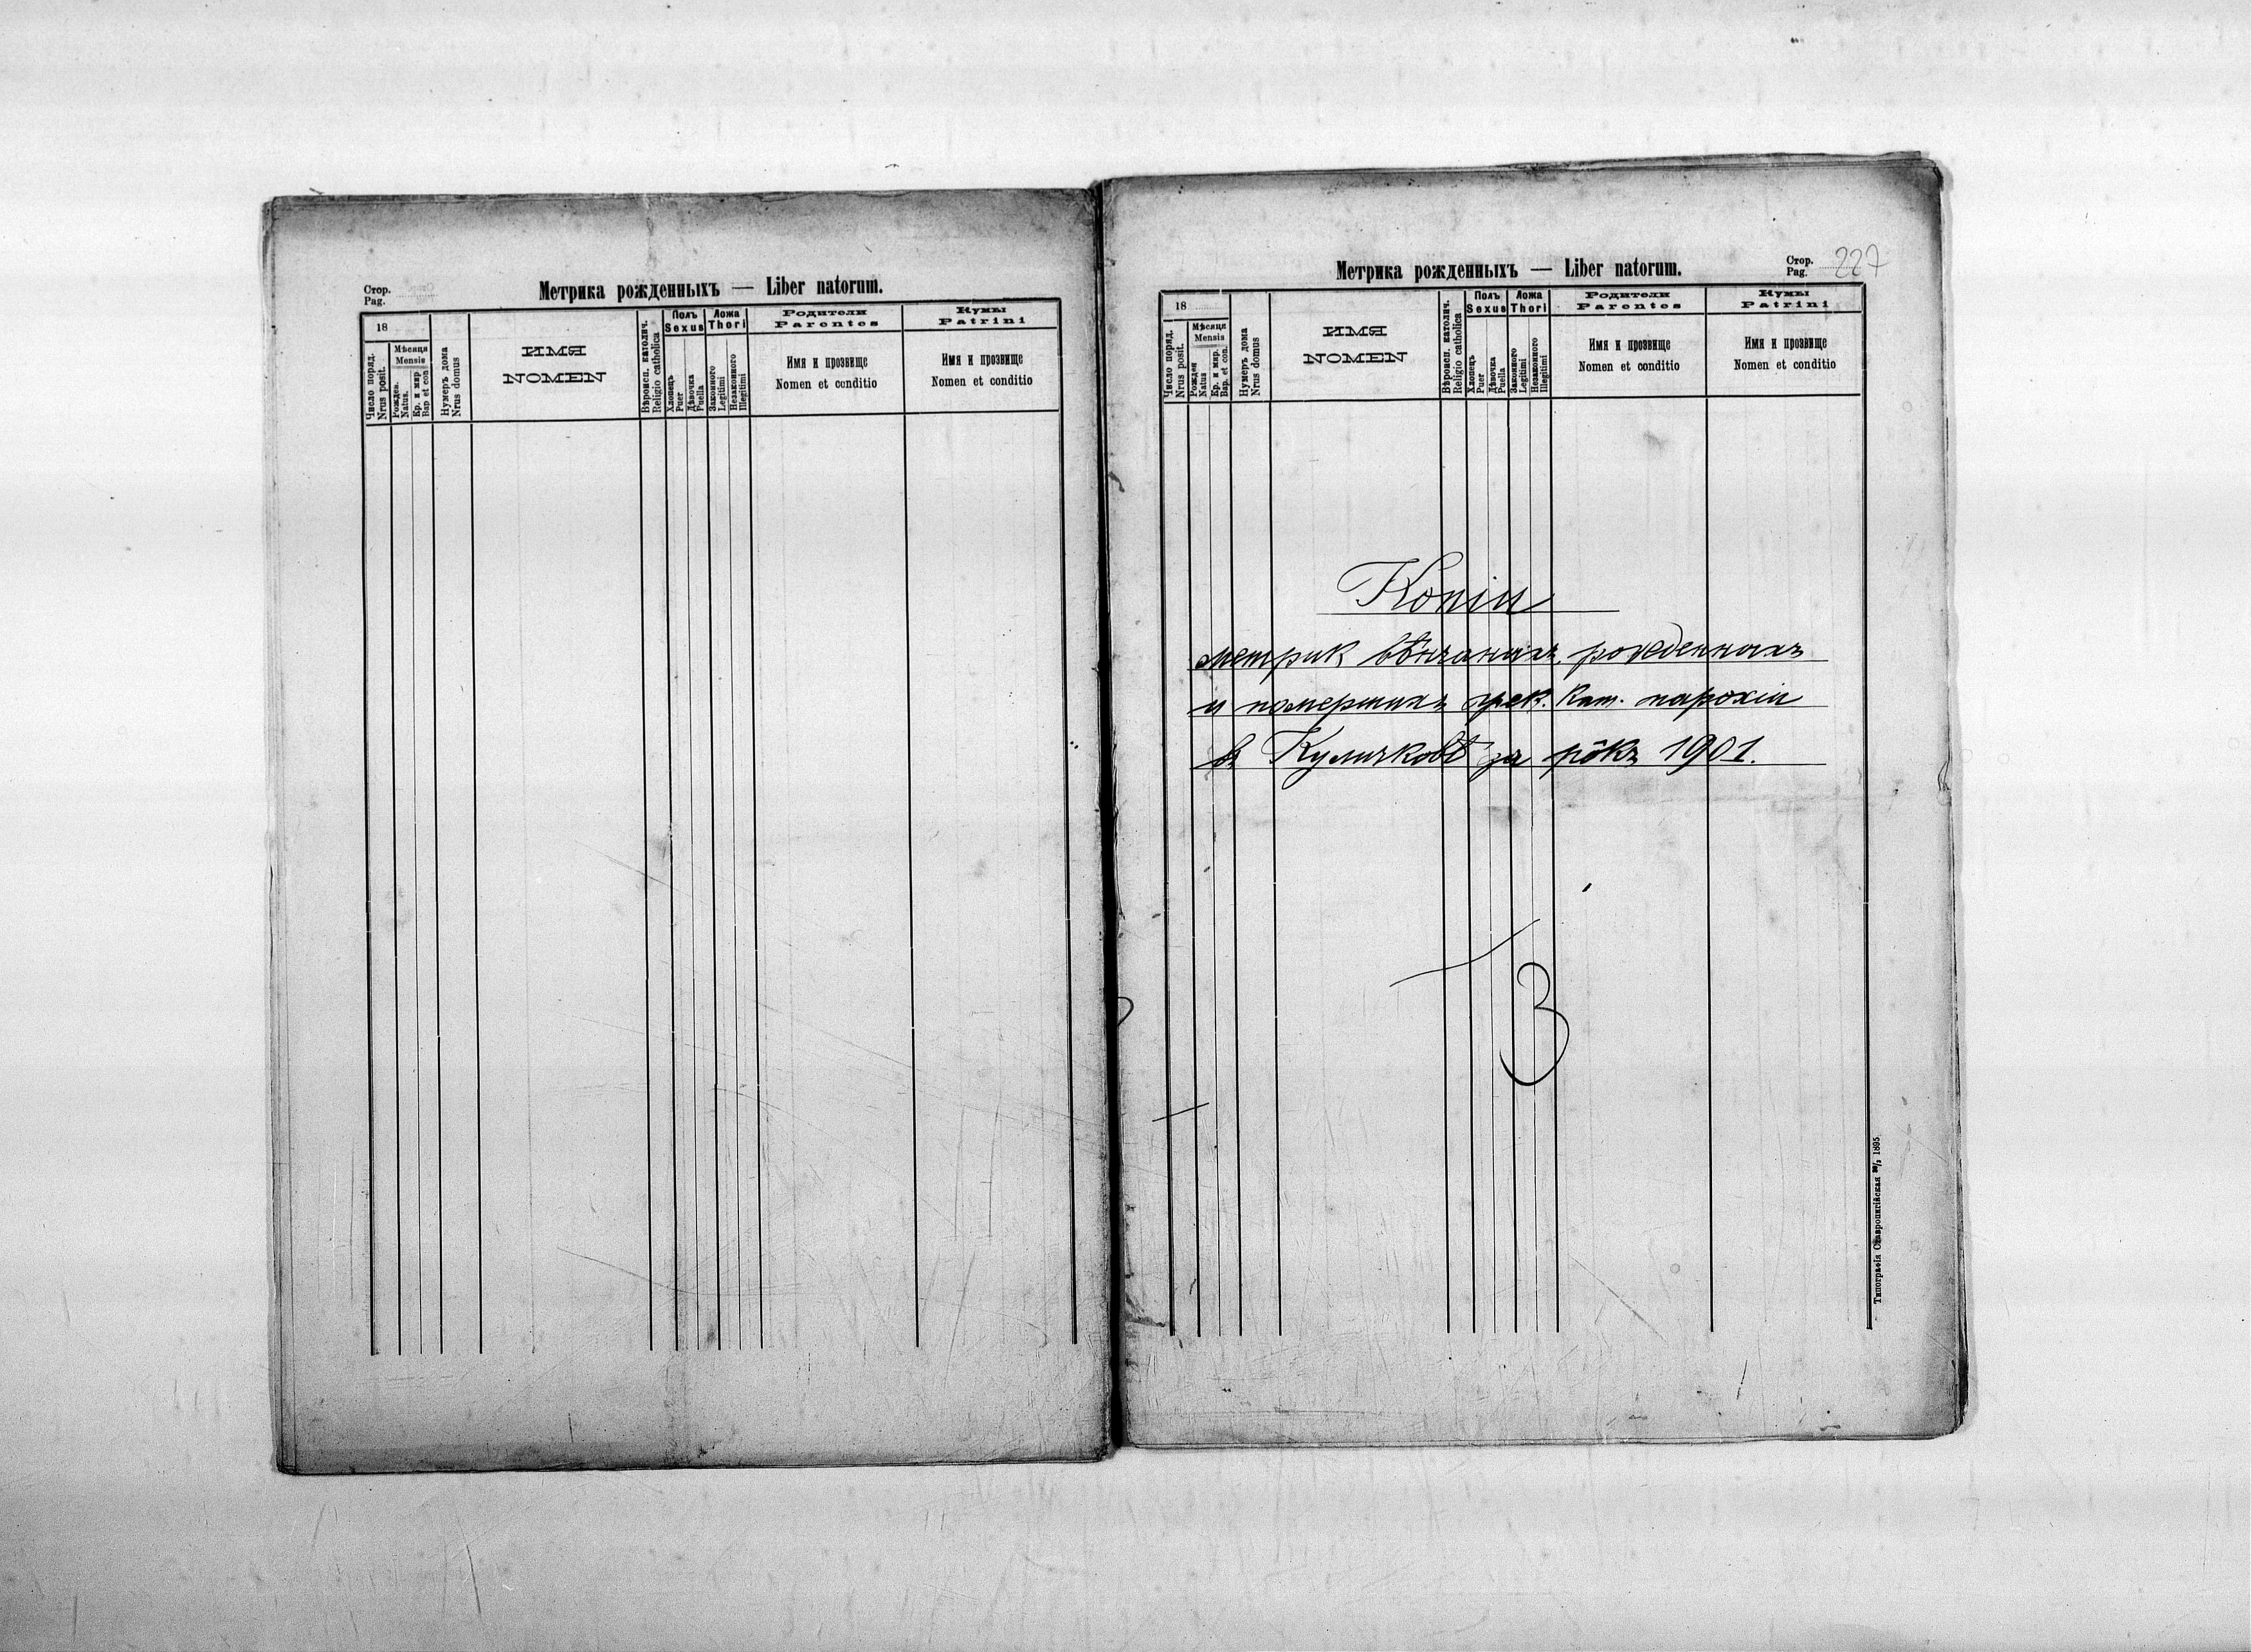 Стор.
Pag.
Метрика рожденныхъ — Liber natorum.
18
Число поряд.
Nrus posit.
Мѣсяця
Mensis
Рожден.
Natus.
Кр. и мир
Bap et con
Нумеръ дома
Nrus domus
ИМЯ
NOMEN
Вѣроисп. католич.
Religio catholica
Полъ
Sexus
Хлопець
Puer
Дѣвочка
Puella
Ложа
Thori
Законного
Legitimi
Незаконного
Illegitimi
Родители
Parentes
Имя и прозвище
Nomen et conditio
Кумы
Patrini
Имя и прозвище
Nomen et conditio
Метрика рожденныхъ — Liber natorum.
Стор.
Pag.
227
18
Число поряд.
Nrus posit.
Мѣсяця
Mensis
Рожден
Natus
Кр. и мир.
Bap. et con.
Нумеръ дома
Nrus domus
ИМЯ
NOMEN
Вѣроисп. католич.
Religio catholica
Полъ
Sexus
Хлопець
Puer
Дѣвочка
Puella
Ложа
Thori
Законного
Legitimi
Незаконного
Illegitimi
Родители
Parentes
Имя и прозвище
Nomen et conditio
Кумы
Patrini
Имя и прозвище
Nomen et conditio
Копіи
метрик вѣнчаныхъ, рожденныхъ
и помершихъ грек. кат. парохіи
въ Куличковѣ за рôкъ 1901.
3
Типографія Ставропигійская 1895